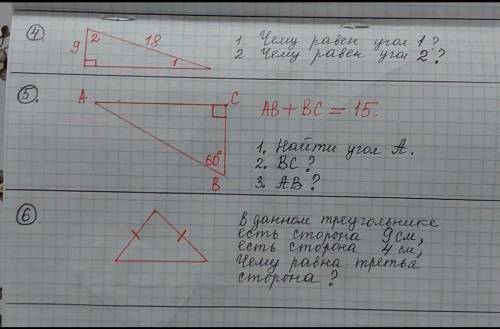 4 9 2 18 1
1 Чему равен угол 1?
2 Чему равен угол 2?
5. A C AB + BC = 15.
60° B
1. Найти угол А.
2. BC?
3. AB?
6 В данном треугольнике
есть сторона 9 см,
есть сторона 4 см,
Чему равна третья
сторона?